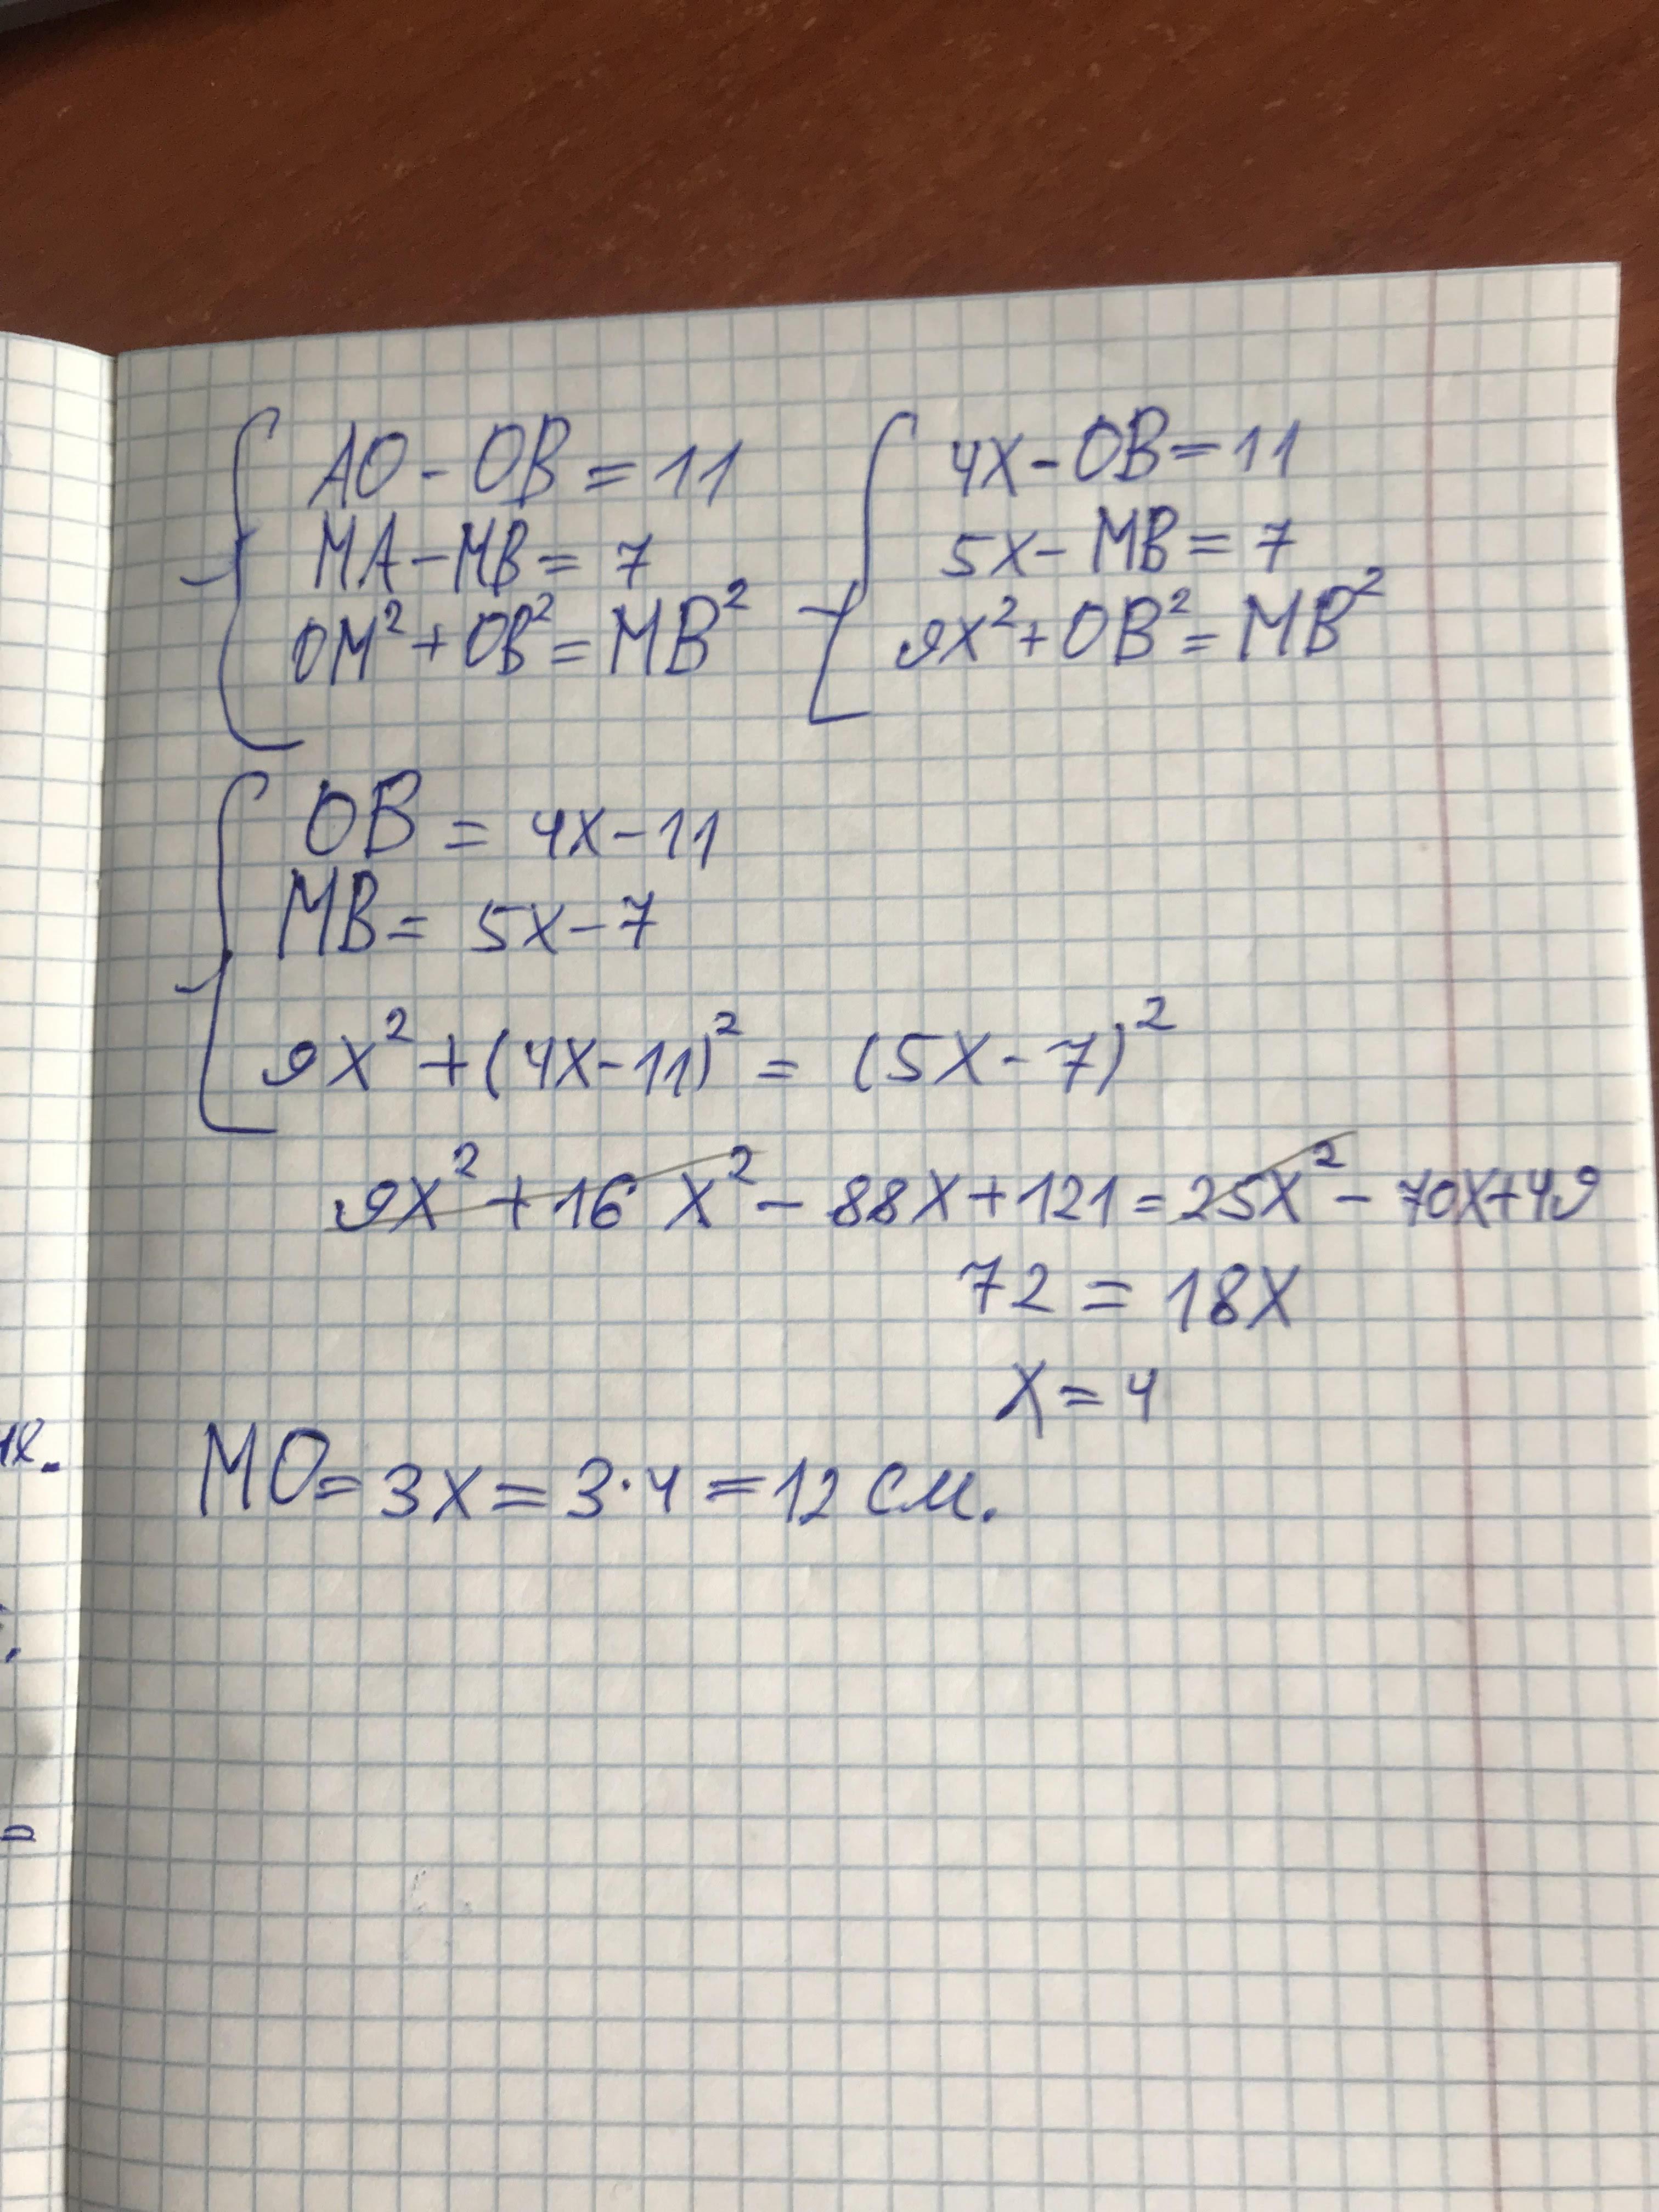 AO - OB = 11
MA - MB = 7
OM² + OB² = MB²
4x - OB = 11
5x - MB = 7
9x² + OB² = MB²
OB = 4x - 11
MB = 5x - 7
9x² + (4x - 11)² = (5x - 7)²
9x² + 16x² - 88x + 121 = 25x² - 70x + 49
72 = 18x
x = 4
MO = 3x = 3·4 = 12 см.